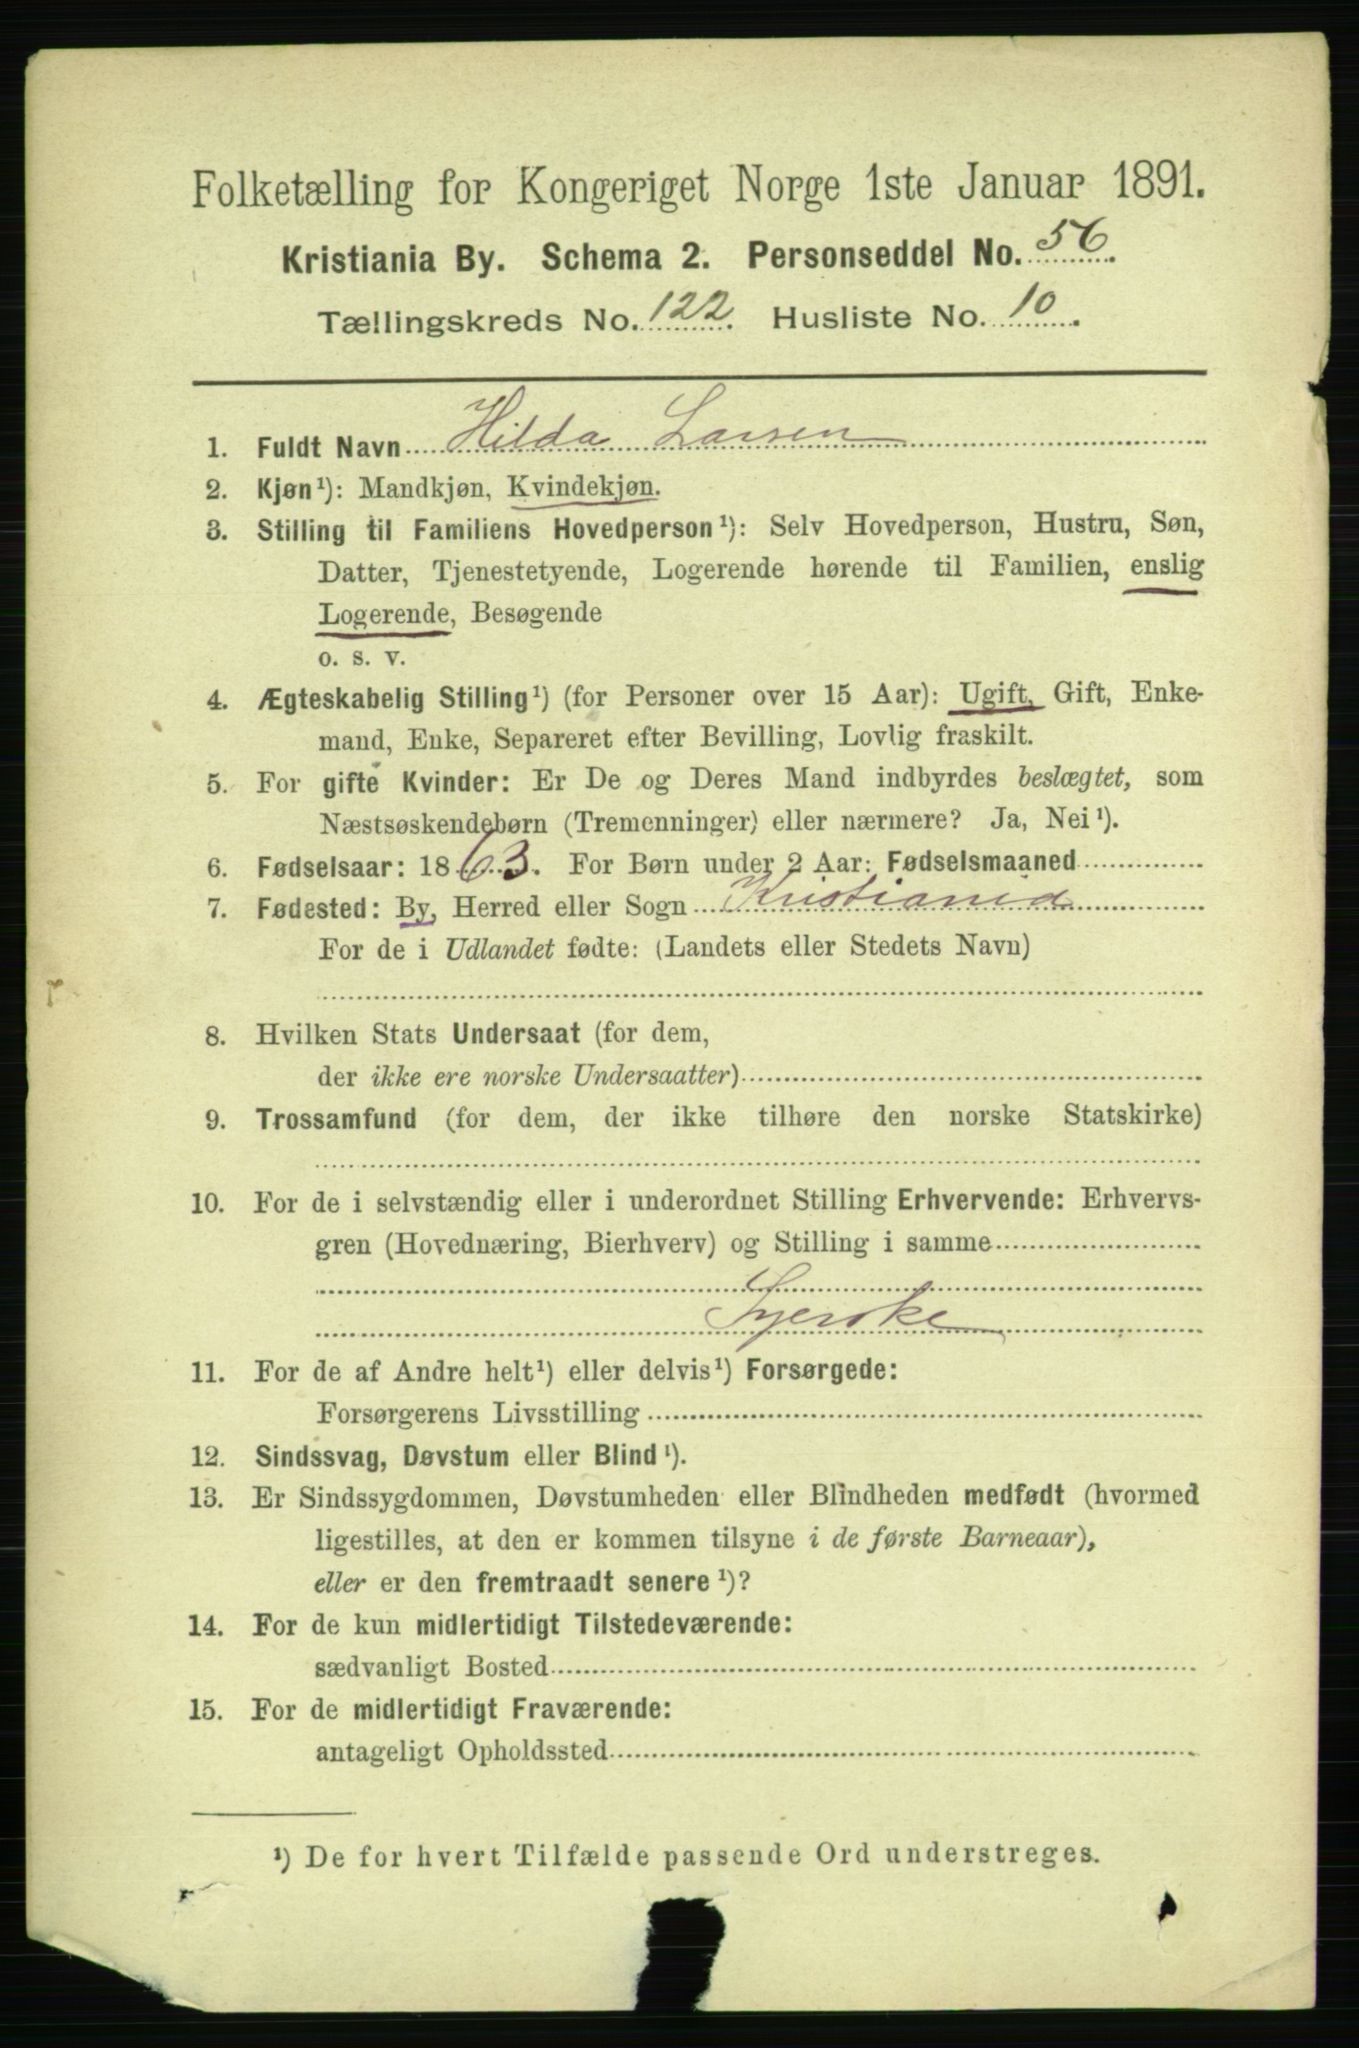 Folketælling for Kongeriget Norge 1ste Januar 1891.
Kristiania By. Schema 2. Personseddel No. 56.
Tællingskreds No. 122. Husliste No. 10.
1. Fuldt Navn Hilda Larsen
2. Kjøn¹): Mandkjøn, Kvindekjøn.
3. Stilling til Familiens Hovedperson¹): Selv Hovedperson, Hustru, Søn,
Datter, Tjenestetyende, Logerende hørende til Familien, enslig
Logerende, Besøgende
o. s. v.
4. Ægteskabelig Stilling¹) (for Personer over 15 Aar): Ugift, Gift, Enke-
mand, Enke, Separeret efter Bevilling, Lovlig fraskilt.
5. For gifte Kvinder: Er De og Deres Mand indbyrdes beslægtet, som
Næstsøskendebørn (Tremenninger) eller nærmere? Ja, Nei¹).
6. Fødselsaar: 1863. For Børn under 2 Aar: Fødselsmaaned
7. Fødested: By, Herred eller Sogn Kristiania
For de i Udlandet fødte: (Landets eller Stedets Navn)
8. Hvilken Stats Undersaat (for dem,
der ikke ere norske Undersaatter)
9. Trossamfund (for dem, der ikke tilhøre den norske Statskirke)
10. For de i selvstændig eller i underordnet Stilling Erhvervende: Erhvervs-
gren (Hovednæring, Bierhverv) og Stilling i samme
Syerske
11. For de af Andre helt¹) eller delvis¹) Forsørgede:
Forsørgerens Livsstilling
12. Sindssvag, Døvstum eller Blind¹).
13. Er Sindssygdommen, Døvstumheden eller Blindheden medfødt (hvormed
ligestilles, at den er kommen tilsyne i de første Barneaar),
eller er den fremtraadt senere¹)?
14. For de kun midlertidigt Tilstedeværende:
sædvanligt Bosted
15. For de midlertidigt Fraværende:
antageligt Opholdssted
¹) De for hvert Tilfælde passende Ord understreges.